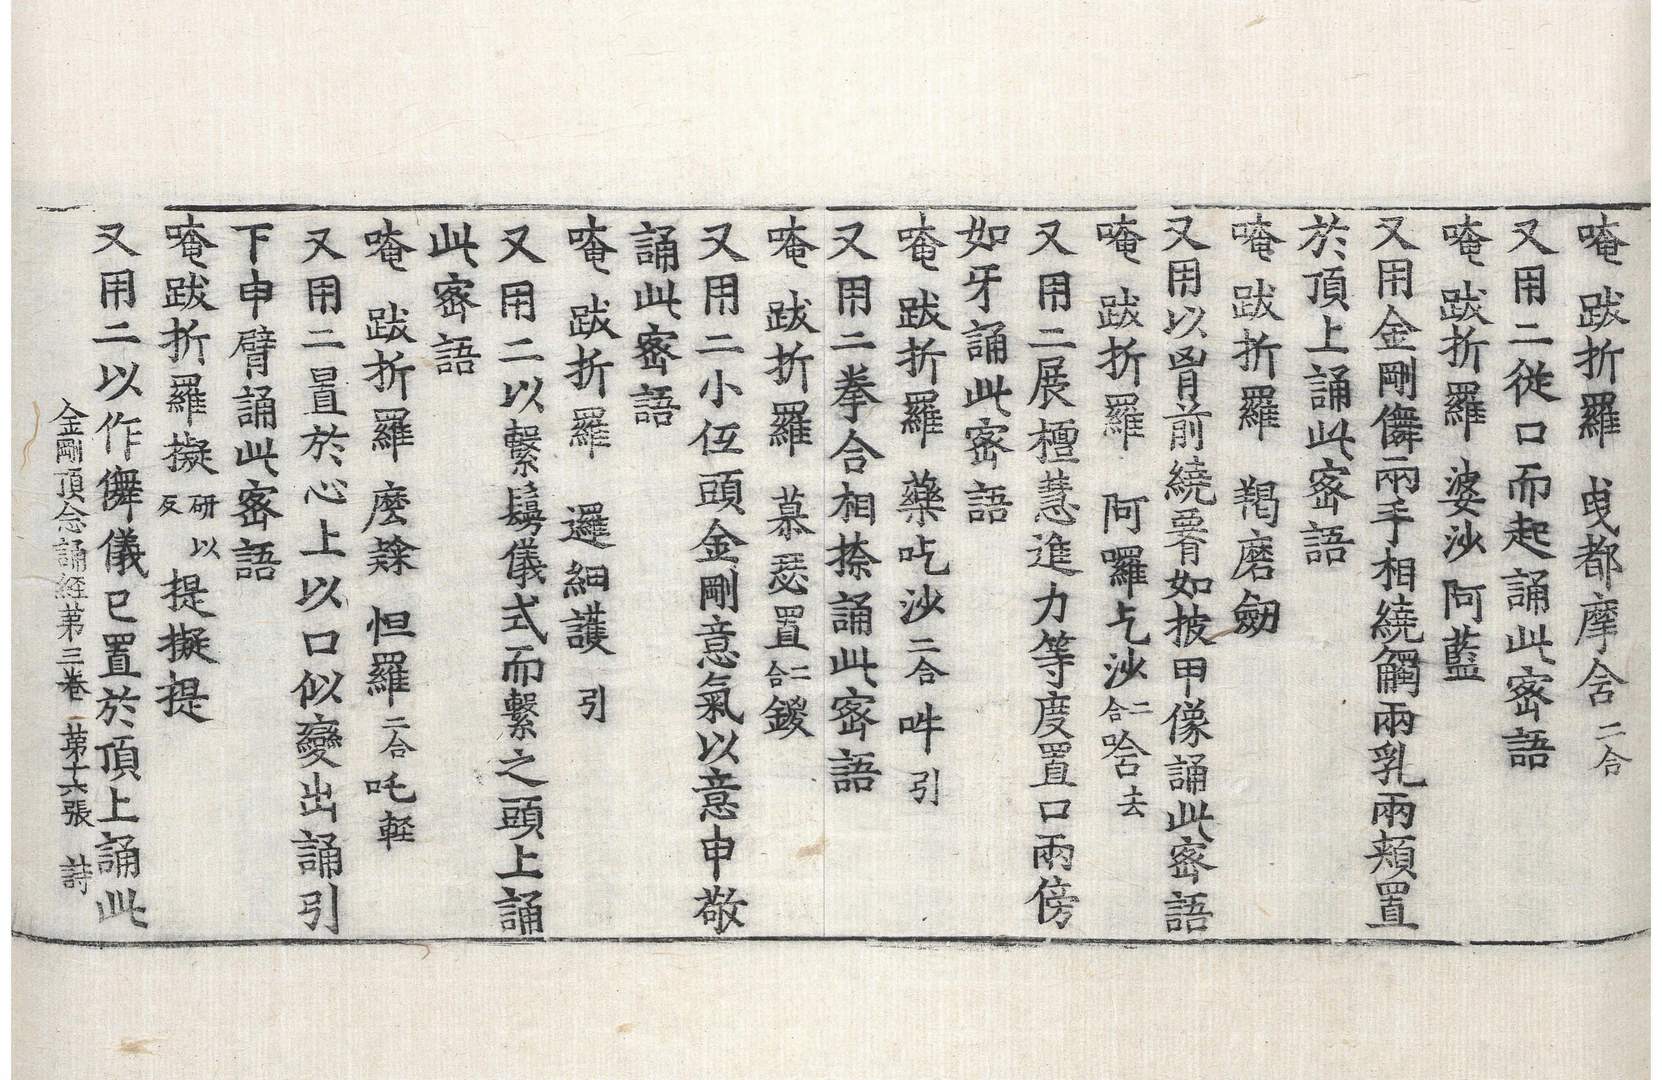 唵 跋折羅 曳都摩舍二合
又用二從口而起誦此密語
唵 跋折羅 婆沙 阿藍
又用金剛儛兩手相繞觸兩乳兩頰置
於頂上誦此密語
唵 跋折羅 羯磨劒
又用以胷前繞𦝫如披甲像誦此密語
唵 跋折羅 阿囉乞沙二合唅去
又用二展檀慧進力等度置口兩傍
如牙誦此密語
唵 跋折羅 藥吃沙二合吽引
又用二拳合相捺誦此密語
唵 跋折羅 慕瑟置二合鑁
又用二小伍頭金剛意氣以意申敬
誦此密語
唵 跋折羅 邏細護引
又用二以繫鬘儀式而繫之頭上誦
此密語
唵 跋折羅 麼隸 怛羅二合吒輕
又用二置於心上以口似變出誦引
下申臂誦此密語
唵 跋折羅擬研以反提擬提
又用二以作儛儀已置於頂上誦此
金剛頂念誦經第三卷 第十六張 詩